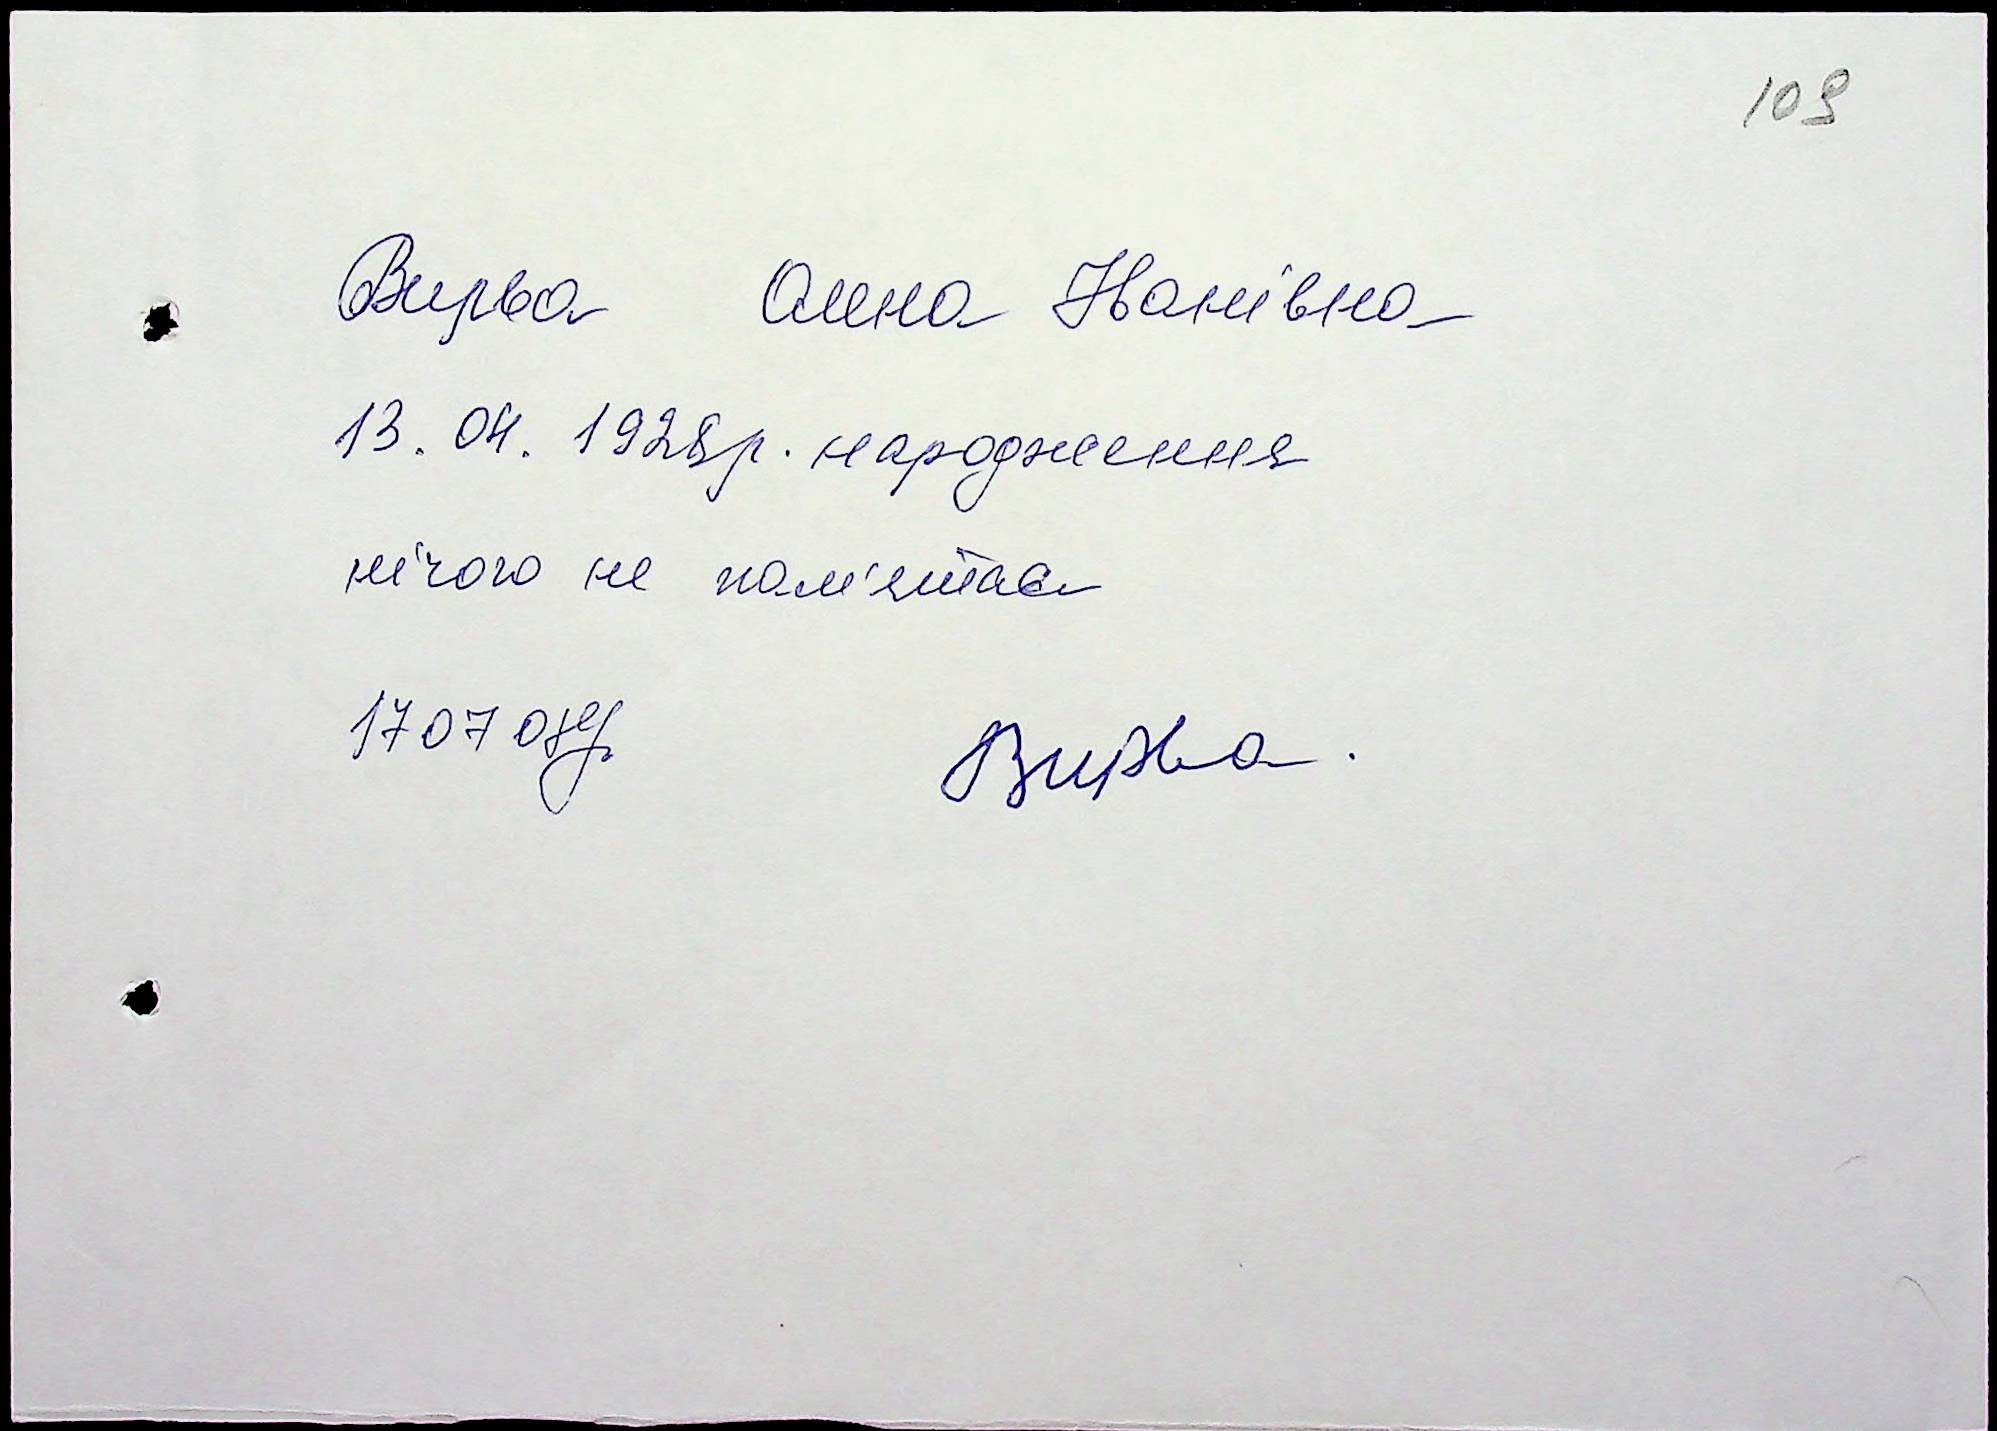 109
Вирва Анна Іванівна
13. 04. 1928р. народження
нічого не пам'ятає
17 07 08р.
Вирва.